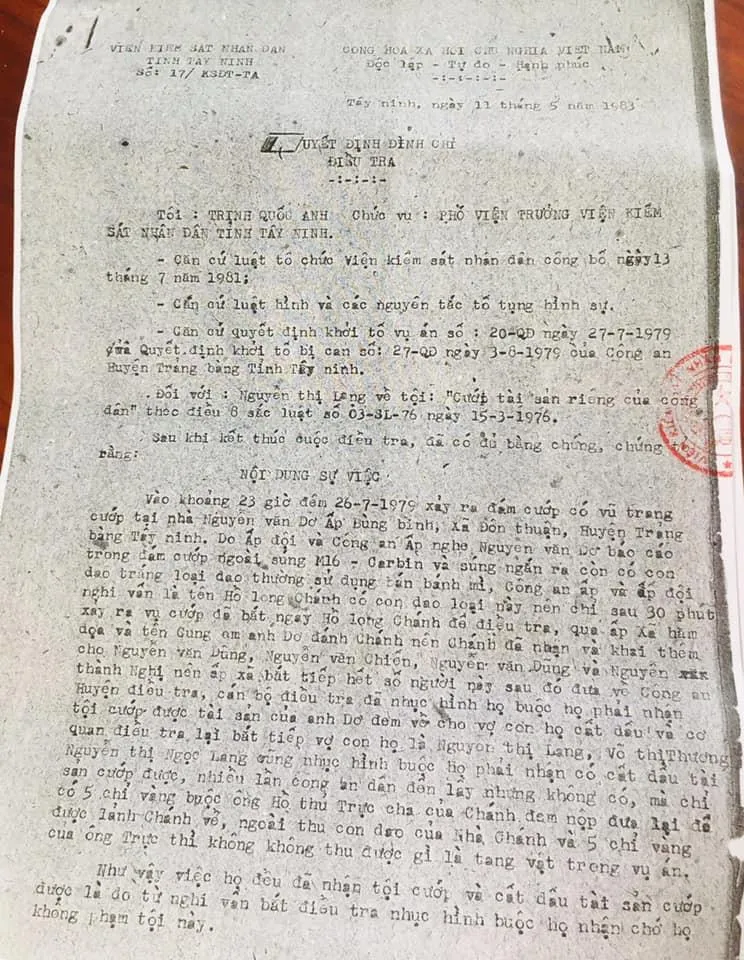 VIỆN KIỂM SÁT NHÂN DÂN
TỈNH TÂY NINH
Số: 17/ KSĐT-TA
CỘNG HÒA XÃ HỘI CHỦ NGHĨA VIỆT NAM
Độc lập - Tự do - Hạnh phúc
-:-:-:-:-
Tây ninh, ngày 11 tháng 5 năm 1983
UYẾT ĐỊNH ĐÌNH CHỈ
ĐIỀU TRA
-:-:-:-
Tôi : TRỊNH QUỐC ANH Chức vụ : PHÓ VIỆN TRƯỞNG VIỆN KIỂM
SÁT NHÂN DÂN TỈNH TÂY NINH.
- Căn cứ luật tổ chức Viện kiểm sát nhân dân công bố ngày13
tháng 7 năm 1981;
- Căn cứ luật hình và các nguyên tắc tố tụng hình sự.
- Căn cứ quyết định khởi tố vụ án số : 20-QĐ ngày 27-7-1979
của Quyết định khởi tố bị can số: 27-QĐ ngày 3-8-1979 của Công an
Huyện Trảng bàng Tỉnh Tây ninh.
Đối với : Nguyễn thị Lang về tội: "Cướp tài sản riêng của công
dân" theo điều 8 sắc luật số 03-SL-76 ngày 15-3-1976.
Sau khi kết thúc cuộc điều tra, đã có đủ bằng chứng, chứng
rằng:
NỘI DUNG SỰ VIỆC
Vào khoảng 23 giờ đêm 26-7-1979 xảy ra đám cướp có vũ trang
cướp tại nhà Nguyễn văn Dơ Ấp Bùng bình, Xã Đôn thuận, Huyện Trảng
bàng Tây ninh. Do Ấp đội và Công an Ấp nghe Nguyễn văn Dơ báo cáo
trong đám cướp ngoài súng M16 - Carbin và súng ngắn ra còn có con
dao trắng loại dao thường sử dụng bán bánh mì, Công an ấp và ấp đội
nghi vấn là tên Hồ long Chánh có con dao loại này nên chỉ sau 30 phút
xảy ra vụ cướp đã bắt ngay Hồ long Chánh để điều tra, qua ấp Xã hăm
dọa và tên Cung em anh Dơ đánh Chánh nên Chánh đã nhận và khai thêm
cho Nguyễn văn Dũng, Nguyễn văn Chiến, Nguyễn văn Dung và Nguyễn xxx
thành Nghị nên ấp xã bắt tiếp hết số người này sau đó đưa về Công an
Huyện điều tra, cán bộ điều tra đã nhục hình họ buộc họ phải nhận
tội cướp được tài sản của anh Dơ đem về cho vợ con họ cất dấu và cơ
quan điều tra lại bắt tiếp vợ con họ là Nguyễn thị Lang, Võ thịThương
Nguyễn thị Ngọc Lang cũng nhục hình buộc họ phải nhận có cất dấu tài
sản cướp được, nhiều lần công an dẫn đến lấy nhưng không có, mà chỉ
có 5 chỉ vàng buộc ông Hồ thu Trực cha của Chánh đem nộp đưa lại để
được lảnh Chánh về, ngoài thu con dao của Nhà Chánh và 5 chỉ vàng
của ông Trực thì không không thu được gì là tang vật trong vụ án.
Như vậy việc họ đều đã nhận tội cướp và cất dấu tài sản cướp
được là do từ nghi vấn bắt điều tra nhục hình buộc họ nhận chớ họ
không phạm tội này.